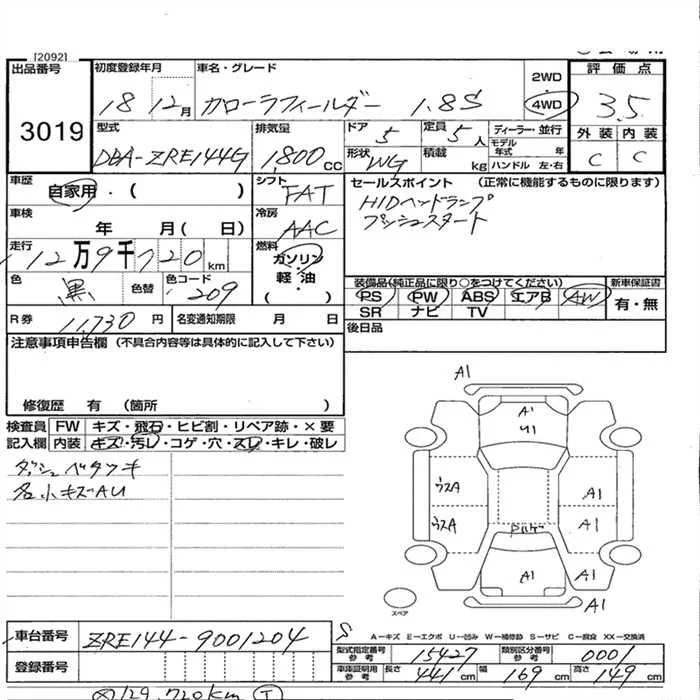 [2092]
出品番号
3019
初度登録年月
18 12月
車名・グレード
カローラフィールダー 1.8S
2WD
4WD
評価点
3.5
外装 内装
C C
型式
DBA-ZRE144G
排気量
1,800cc
ドア 5
定員 5人
形状 WG
積載 kg
ディーラー・並行
モデル年式 年
ハンドル 左・右
車歴
自家用・( )
シフト
FAT
車検
年 月( 日)
冷房
AAC
走行
12万9千720km
燃料
ガソリン
軽・油
・( )
色 黒
色替
色コード 209
R券 11,730円
名変通知期限 月 日
セールスポイント (正常に機能するものに限ります)
HIDヘッドランプ
プッシュスタート
装備品(純正品に限り○をつけてください)
PS PW ABS エアB AW
SR ナビ TV
新車保証書
有・無
後日品
注意事項申告欄 (不具合内容等は具体的に記入して下さい)
修復歴 有 (箇所 )
検査員記入欄
FW キズ・飛石・ヒビ割・リペア跡・×要
内装 キズ・汚レ・コゲ・穴・スレ・キレ・破レ
ダッシュベタツキ
各小キズAU
A1
A1
U1
ウスA
A1
ウスA
A1
A1
A1
A1
スペア
A―キズ E―エクボ U―凹み W―補修跡 S―サビ C―腐食 XX―交換済
車台番号
ZRE144-9001204
登録番号
型式指定番号 参考 15427
類別区分番号 参考 0001
車庫証明用 参考
長さ 441cm
幅 169cm
高さ 149cm
129,720km